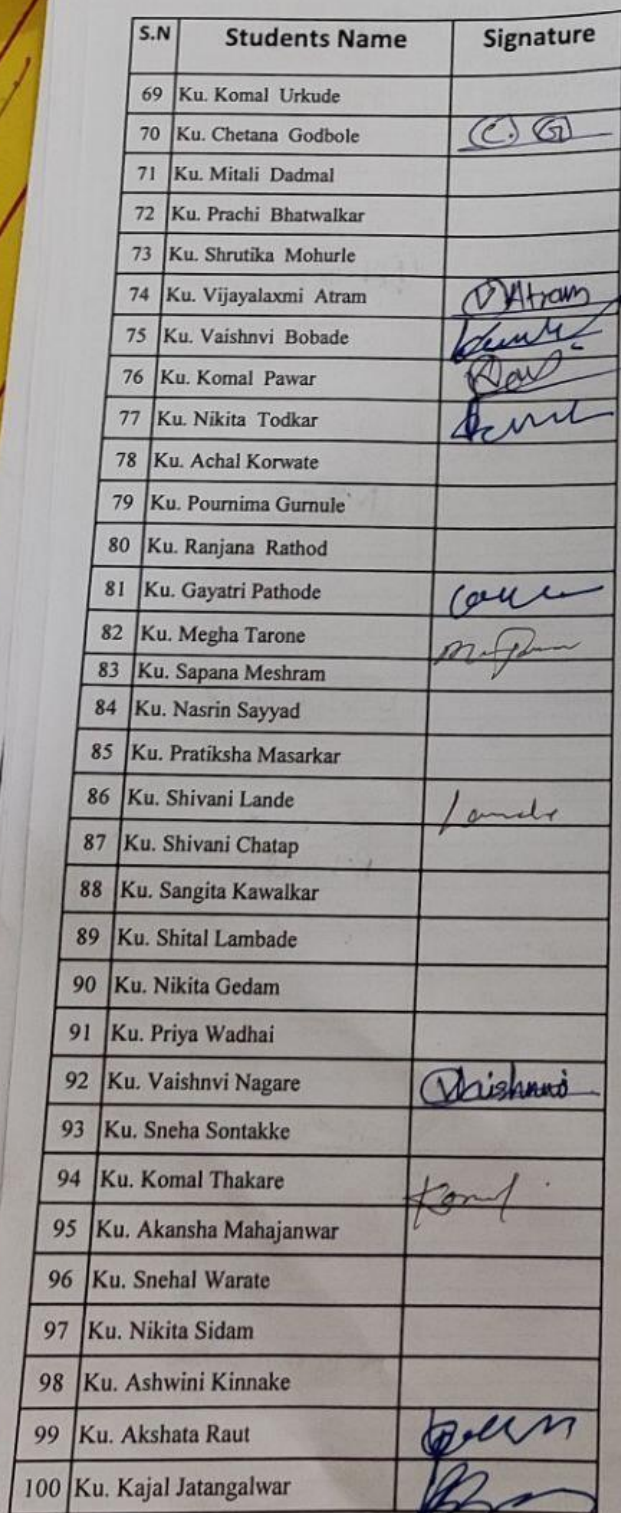 S.N Students Name Signature
69 Ku. Komal Urkude
70 Ku. Chetana Godbole C. G
71 Ku. Mitali Dadmal
72 Ku. Prachi Bhatwalkar
73 Ku. Shrutika Mohurle
74 Ku. Vijayalaxmi Atram V Atram
75 Ku. Vaishnvi Bobade
76 Ku. Komal Pawar
77 Ku. Nikita Todkar
78 Ku. Achal Korwate
79 Ku. Pournima Gurnule
80 Ku. Ranjana Rathod
81 Ku. Gayatri Pathode
82 Ku. Megha Tarone
83 Ku. Sapana Meshram
84 Ku. Nasrin Sayyad
85 Ku. Pratiksha Masarkar
86 Ku. Shivani Lande Lande
87 Ku. Shivani Chatap
88 Ku. Sangita Kawalkar
89 Ku. Shital Lambade
90 Ku. Nikita Gedam
91 Ku. Priya Wadhai
92 Ku. Vaishnvi Nagare Vaishnavi
93 Ku. Sneha Sontakke
94 Ku. Komal Thakare Komal
95 Ku. Akansha Mahajanwar
96 Ku. Snehal Warate
97 Ku. Nikita Sidam
98 Ku. Ashwini Kinnake
99 Ku. Akshata Raut
100 Ku. Kajal Jatangalwar